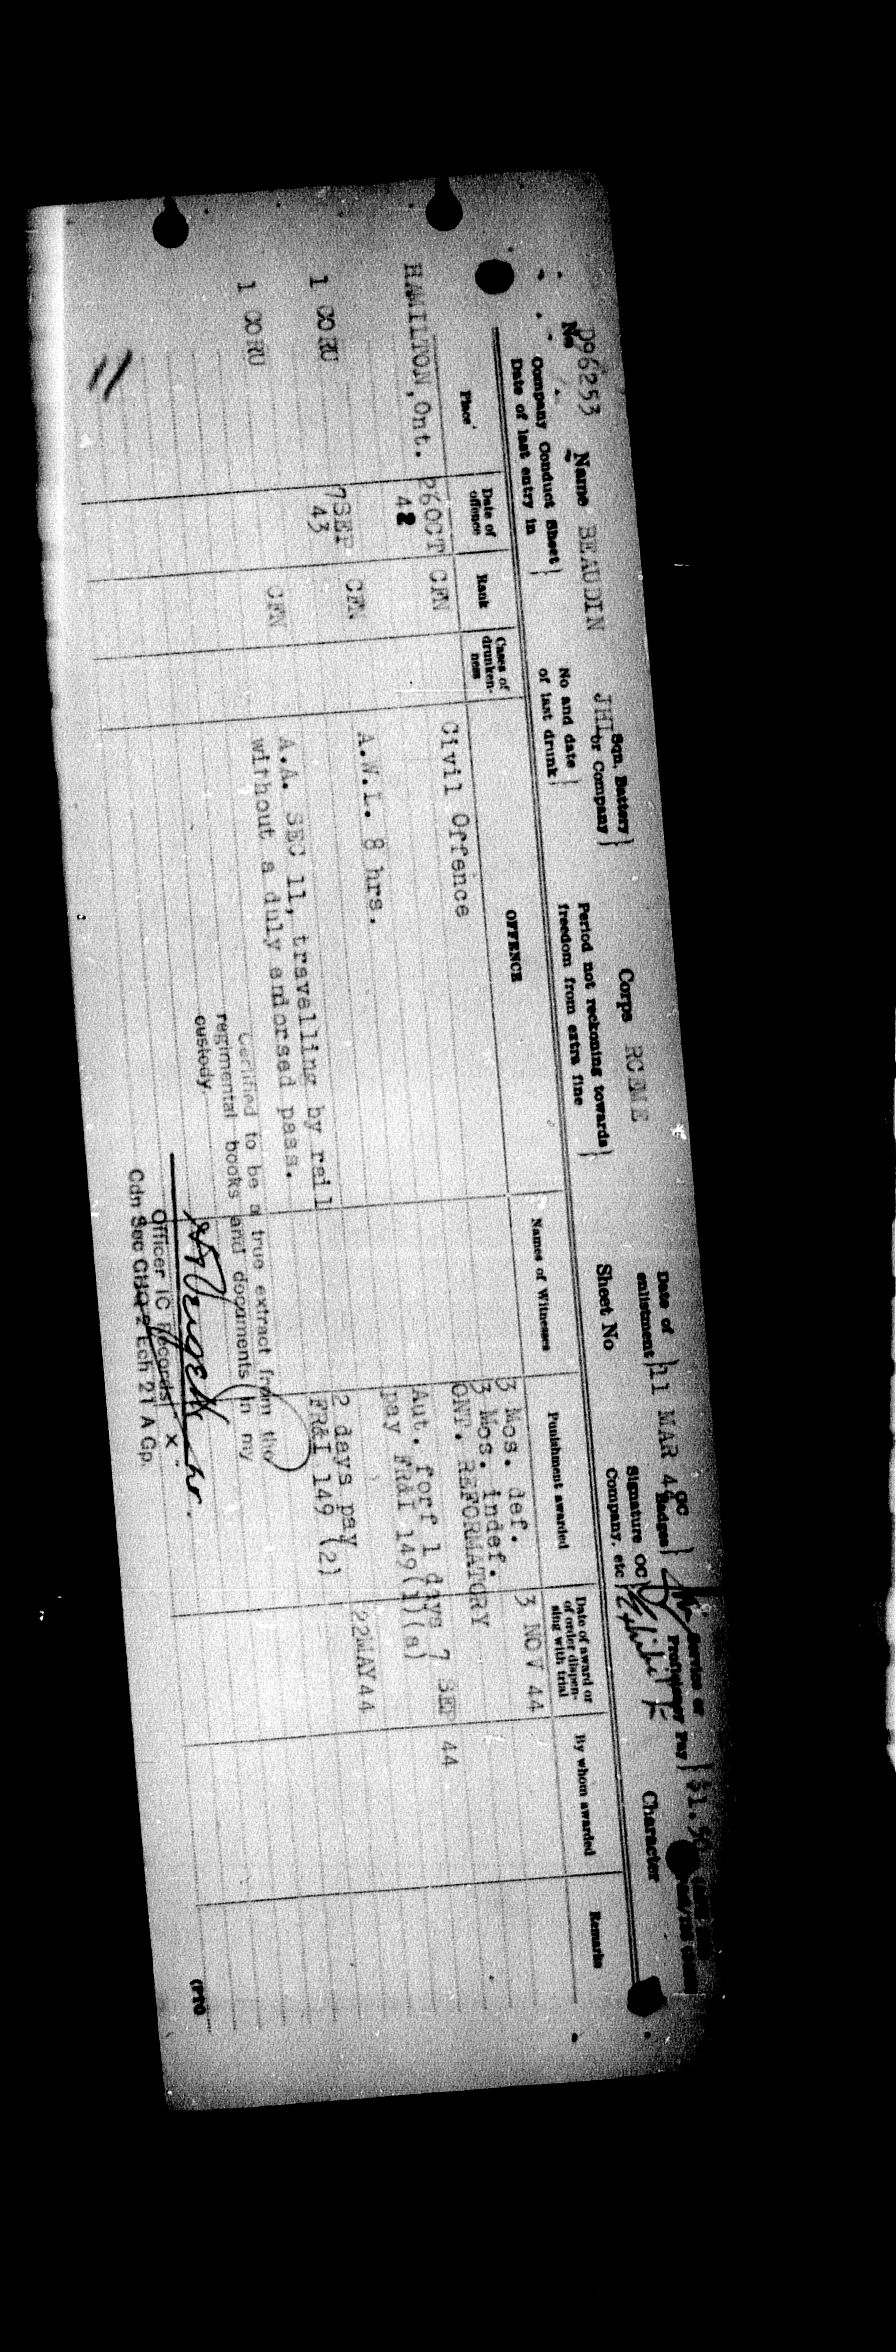 No D96253 Name BEAUDIN JHL Sqn. Battery or Company Corps RCEME Date of enlistment 11 MAR 4 GC Badges Service or Proficiency Pay $1.50
Company Conduct Sheet
Date of last entry in
No and date
of last drunk
Period not reckoning towards
freedom from extra fine
Sheet No
Signature OC
Company, etc
Character
Place Date of offence Rank Cases of drunkenness OFFENCE Names of Witnesses Punishment awarded Date of award or of order dispensing with trial By whom awarded Remarks
HAMILTON, Ont. 26OCT 42 CFN Civil Offence 3 Mos. def. 3 NOV 44
3 Mos. indef.
ONT. REFORMATORY
1 CORU 7SEP 43 CFN A.W.L. 8 hrs. Aut. forf 1 days 7 SEP 44
pay FR&I 149(1)(a)
1 CORU CFN A.A. SEC 11, travelling by rail 2 days pay 22MAY44
without a duly endorsed pass. FR&I 149 (2)
Certified to be a true extract from the
regimental books and documents in my
custody.
Officer IC Records x
Cdn Sec GHQ 2 Ech 21 A Gp.
(PTO